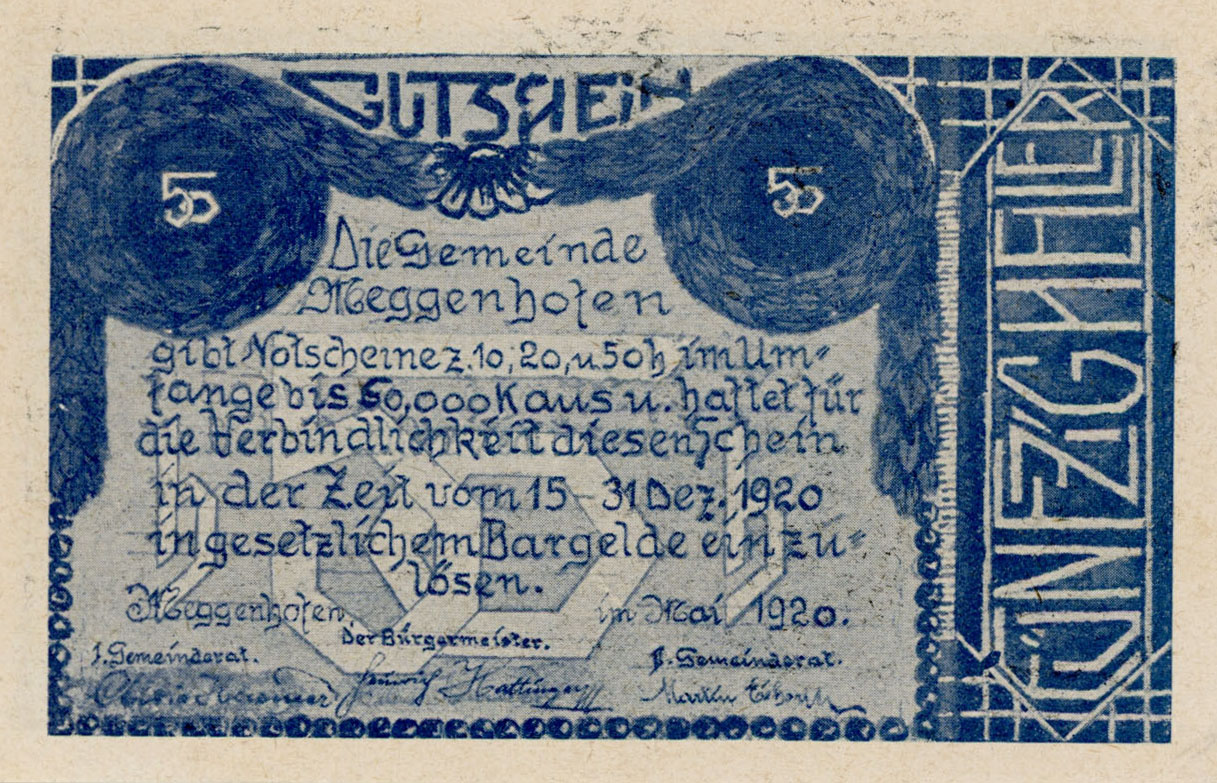 GUTSCHEIN
50
50
Die Gemeinde
Meggenhofen
gibt Notscheine z. 10, 20, u. 50 h, im Um-
fange bis 60,000 K aus u. haftet für
die Verbindlichkeit diesen Schein
in der Zeit vom 15 - 31 Dez. 1920
in gesetzlichem Bargelde einzu-
lösen.
Meggenhofen, im Mai 1920.
Der Bürgermeister.
I. Gemeinderat. II. Gemeinderat.
Heinrich Hattinger Martin
FÜNFZIG HELLER